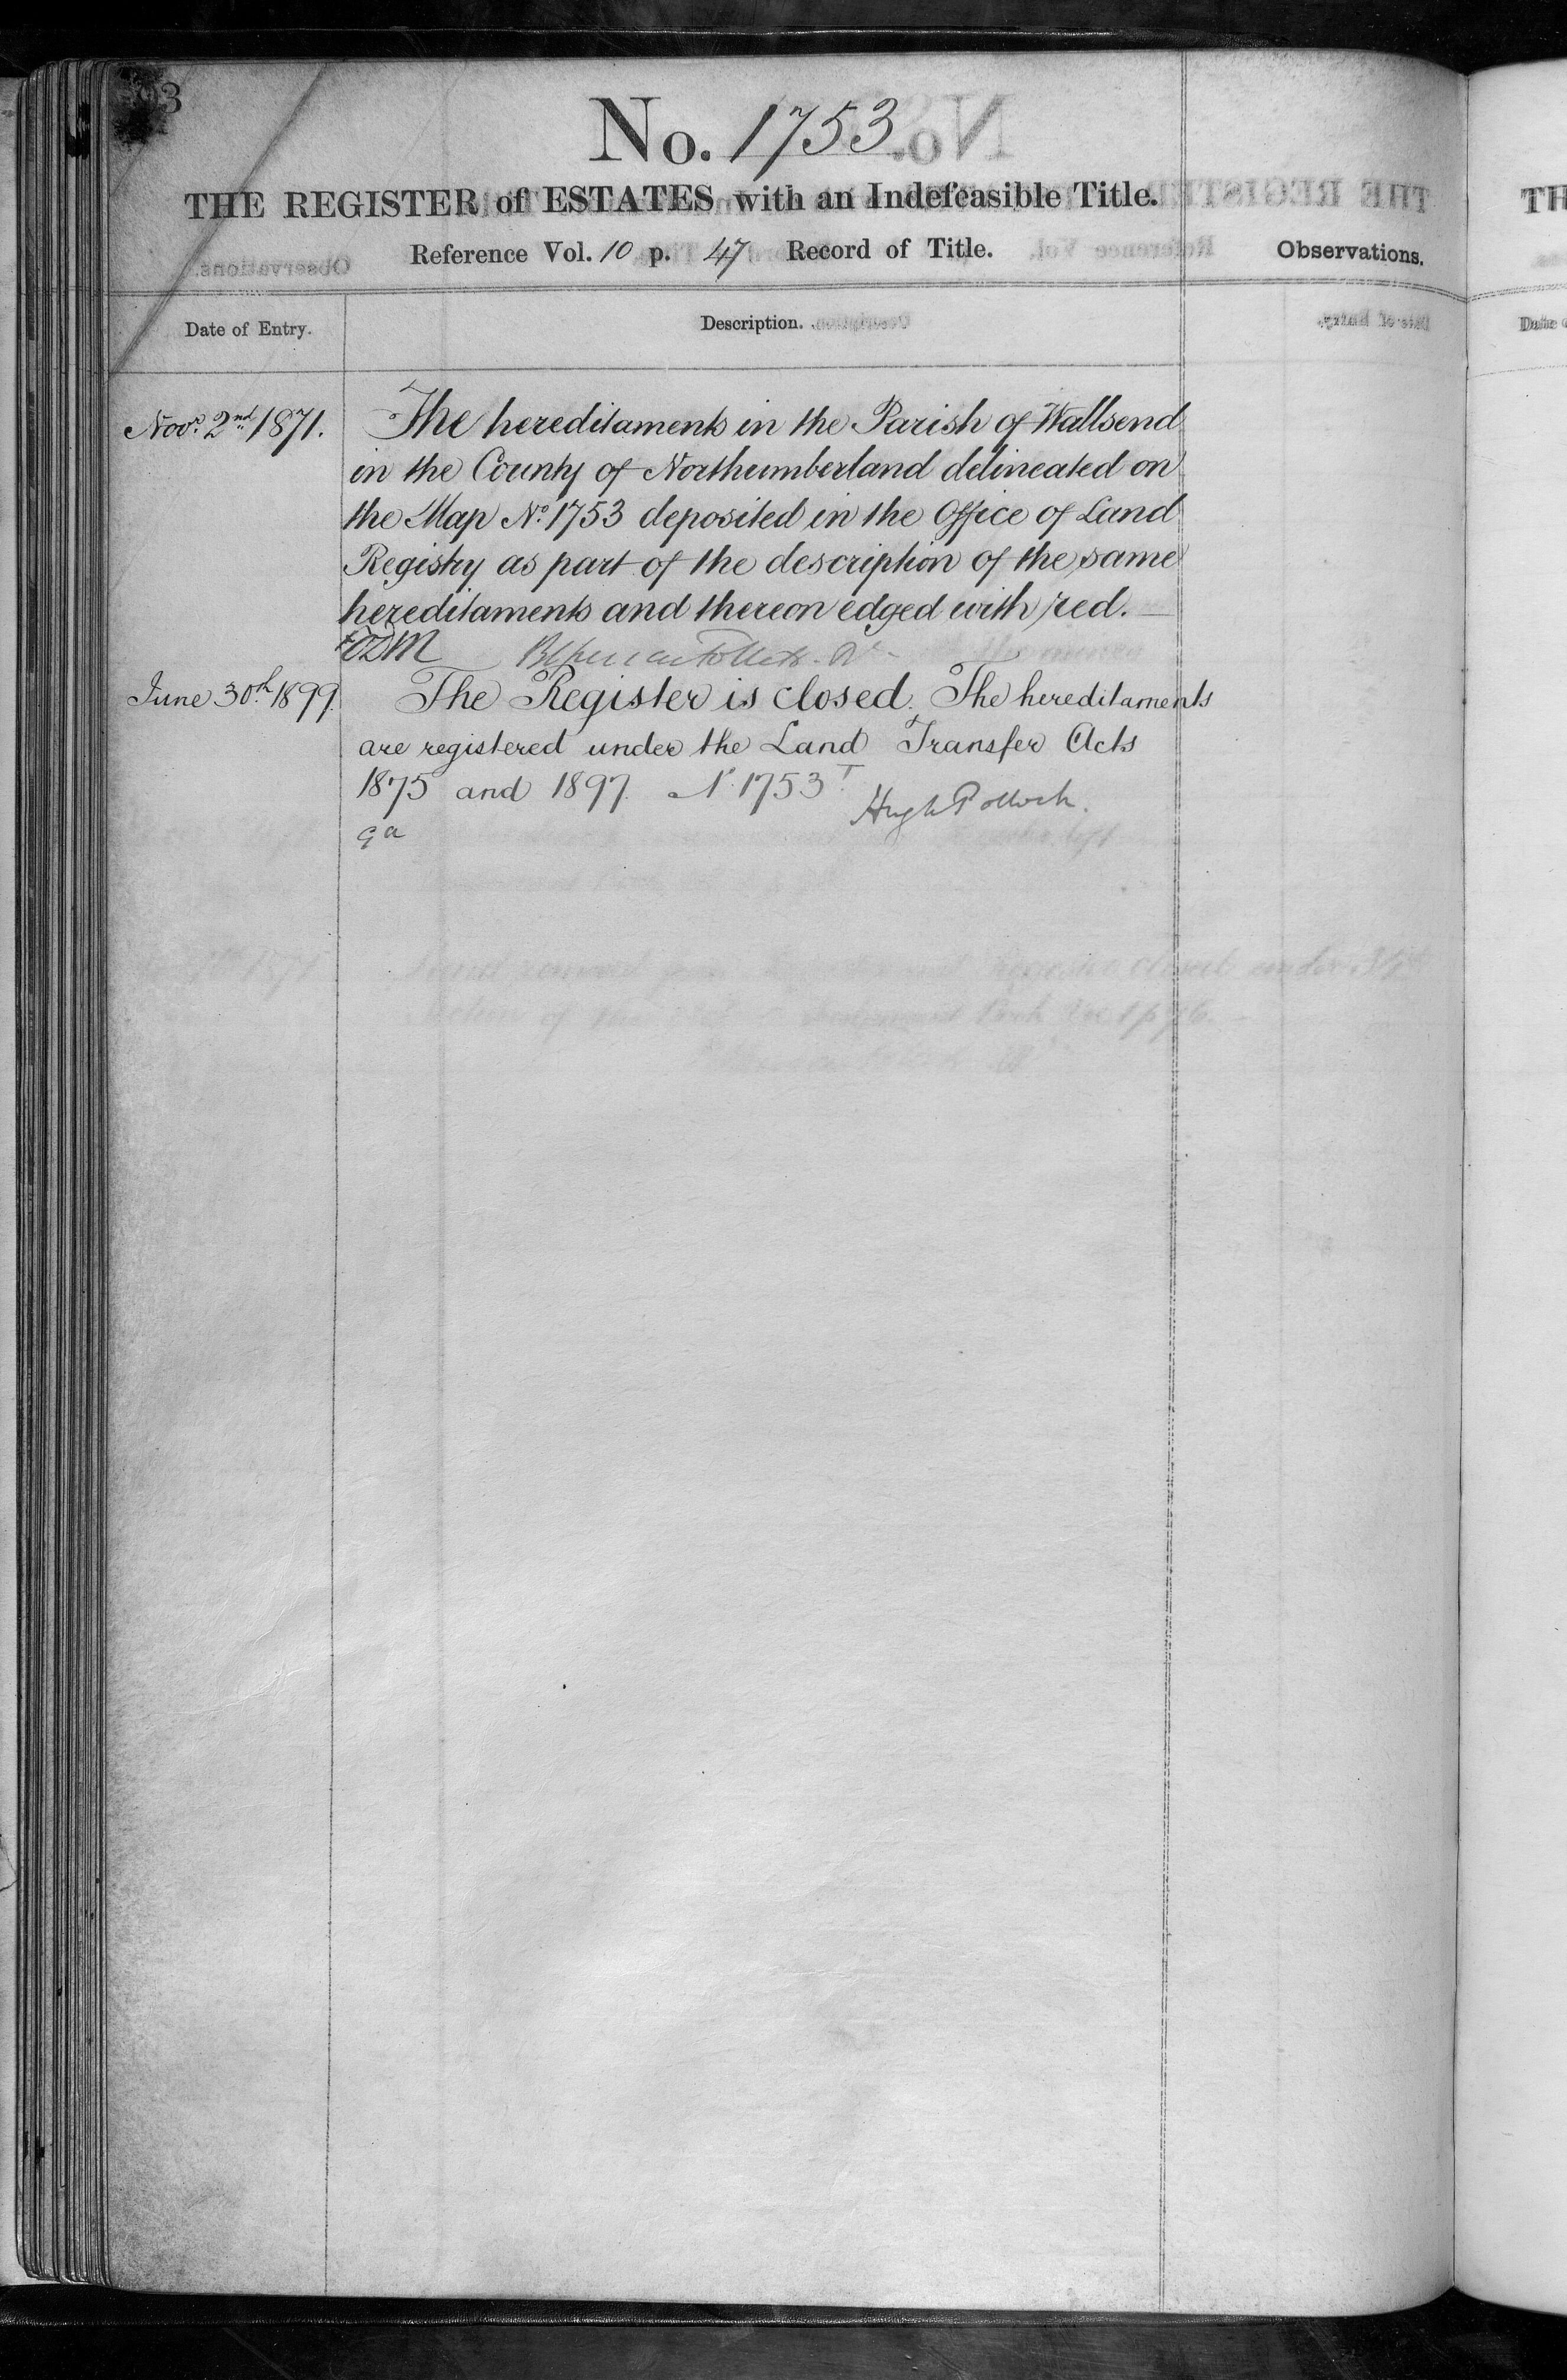 No. 1753
THE REGISTER of ESTATES with an Indefeasible Title.
Reference Vol. 10 p. 47 Record of Title.
Observations.
Date of Entry.
Description.
Novr. 2nd 1871.
The hereditaments in the Parish of Wallsend
in the County of Northumberland delineated on
the Map No. 1753 deposited in the Office of Land
Registry as part of the description of the same
hereditaments and thereon edged with red.
June 30th 1899.
The Register is closed. The hereditaments
are registered under the Land Transfer Acts
1875 and 1897. No. 1753T.
Hugh Pollock.